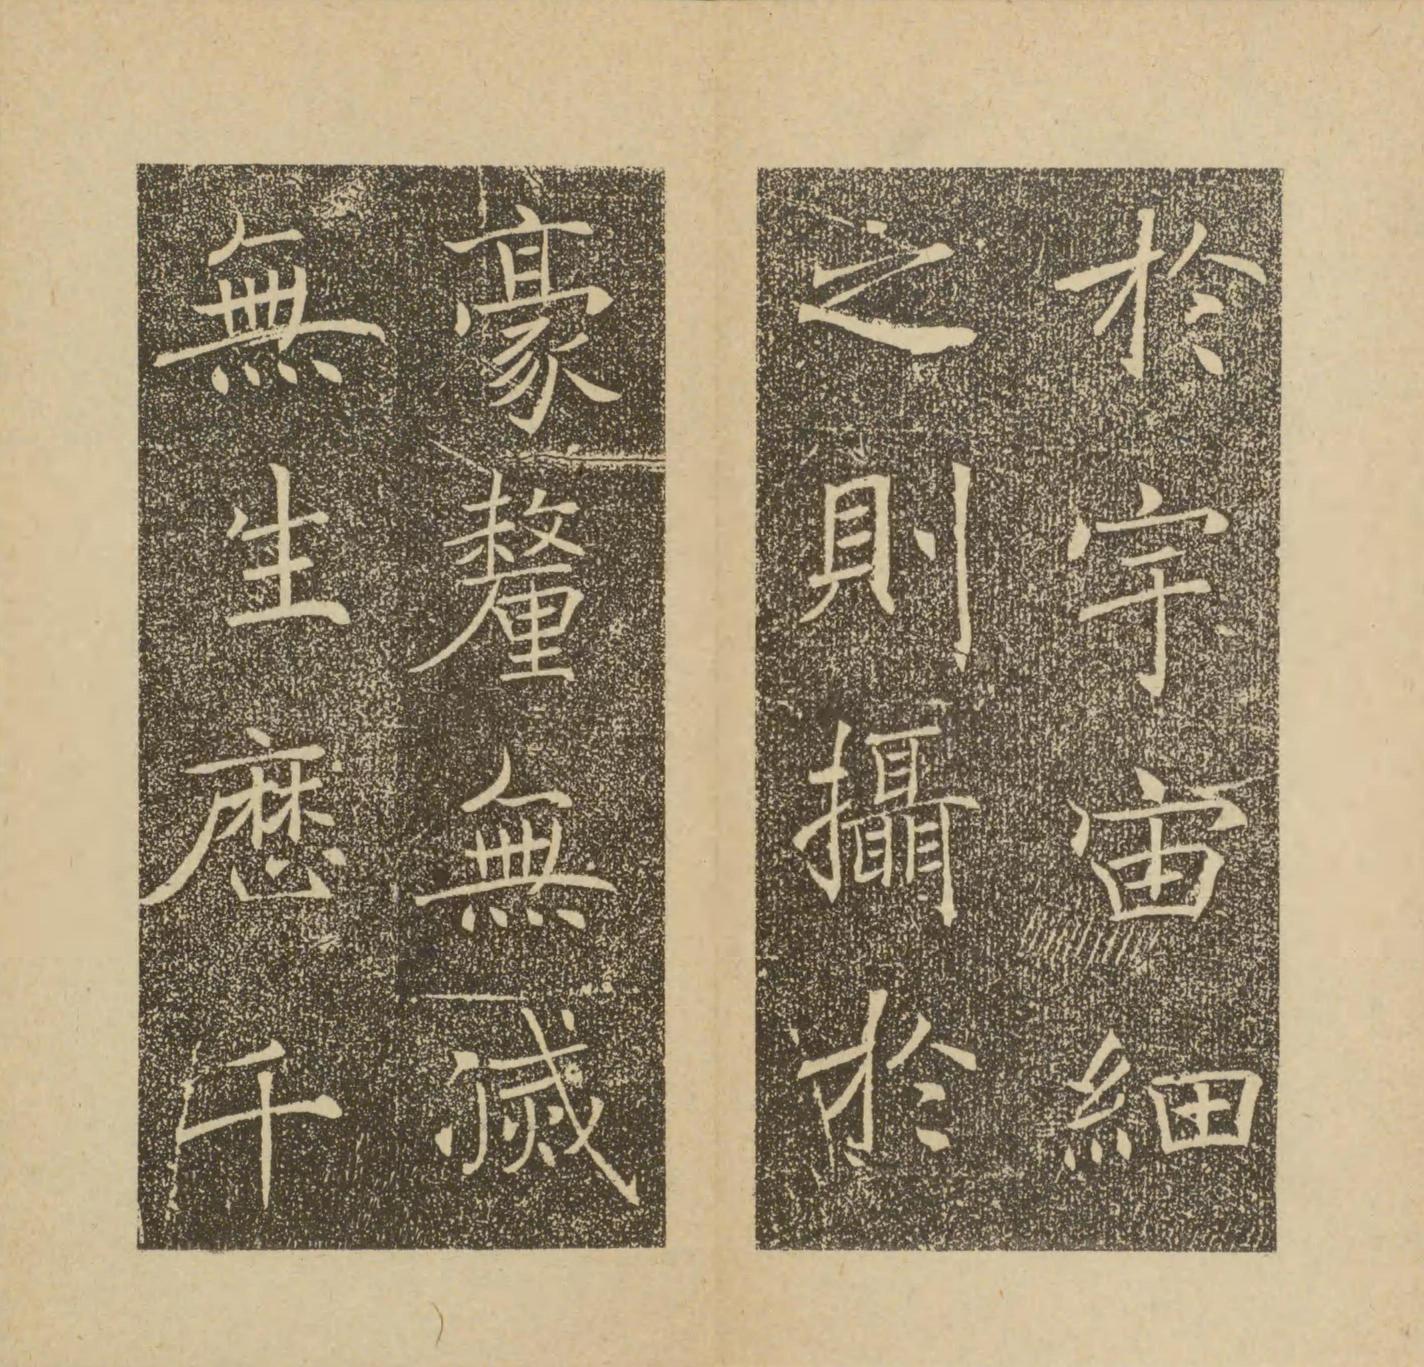 於宇宙細
之則攝於
豪釐無滅
無生歷千